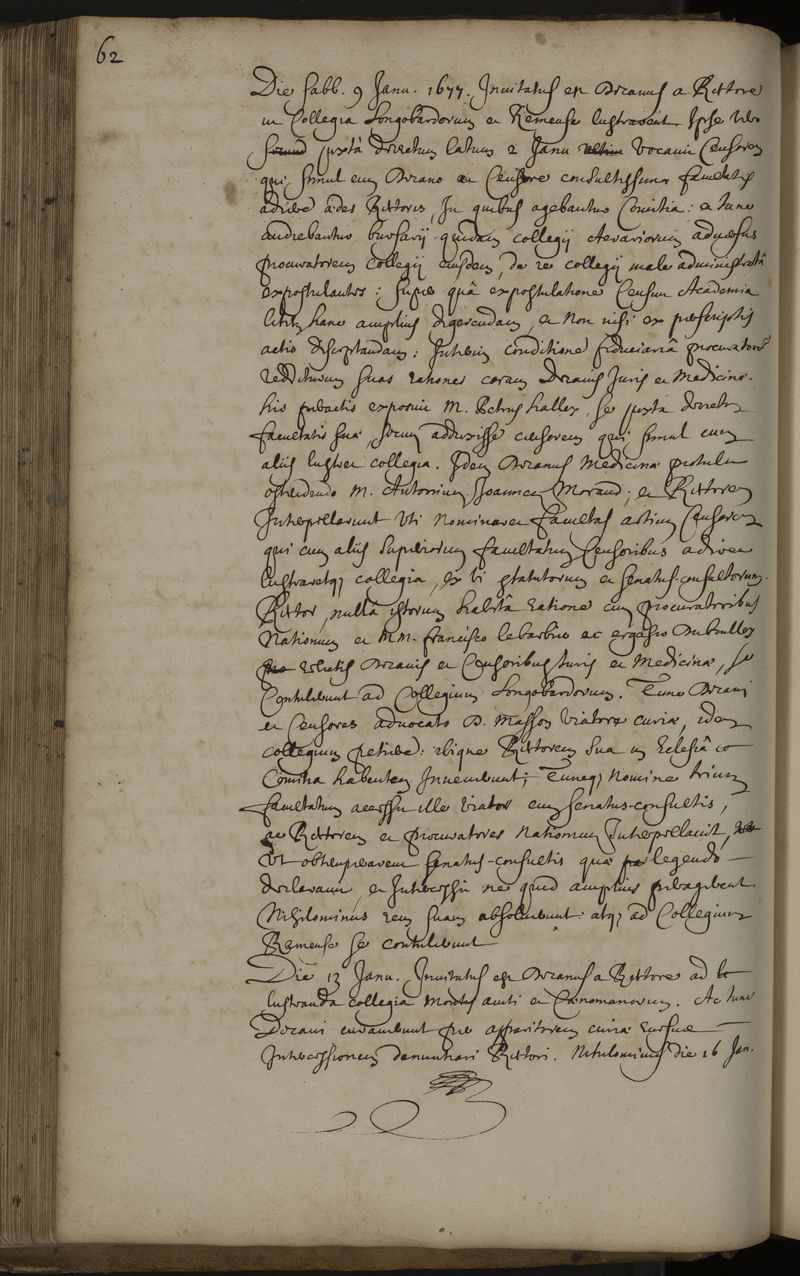 62
Die Sabb. 9 Janu. 1677. Invitatus est Decanus a Rectore
in Collegia Longobardorum et Remense lustrarent Ipse vero
juxta decretum latum 2 Janu vocavit Censorem
qui simul cum Decano et Censore consultissimæ facultatis
adivere ædes Rectoris, In quibus agebantur Comitia: et tunc
audiebantur bursarij quidam collegij adversus
procuratorem collegij eiusdem, de re collegij male administratâ
expostulantes: super quâ expostulatione Censuit Academia
litem hanc amplius digerendam, et non nisi ex præscriptis
actis disceptandam: Interim conditione fiduciariâ procuratorem
redditurum suas rationes coram Decanis Juris et Medicinæ.
his peractis exposuit M. Petrus halley, se juxta decretum
facultatis suæ, secum adduxisse censorem qui simul cum
aliis lustret collegia. Idem Decanus Medicinæ protulit
ostendendo M. Antonium Joannem Morand; et Rectorem
Interpellarunt uti nominaret facultas artium Censorem
qui cum aliis superiorum facultatum Censoribus adiret
lustraretq; collegia, ex vi statutorum et senatus-consultorum.
Rector, nullâ istorum habitâ ratione cum procuratoribus
Nationum et MM. francisco le barbier ac
relictis Decanis et Censoribus Juris et Medicinæ, se
Contulerunt ad Collegium Longobardorum. Tunc Decani
et Censores advocato D. Masson viatore curiæ, idem
collegium petivere: ibique Rectorem sua in Ecclesiâ
Comitia habentem Invenerunt; Tuncq; nomine trium
facultatum accessit ille viator cum senatus-consultis,
ac Rectorem et procuratores Nationum Interpellavit,
Ut obtemperarent senatus-consultis quæ legendo
declaravit, et Intercessit ne quid amplius peragerent.
Nihilominus rem suam absolverunt: atq; ad Collegium
Remense se contulerunt
Die 13 Janu. Invitatus est Decanus a Rectore ad
lustranda collegia Montis acuti et Cenomanorum. Ac tunc
Decani curaverunt per apparitorem curiæ rursus
Intercessionem denuntiari Rectori. Nihilominus die 16 Jan.